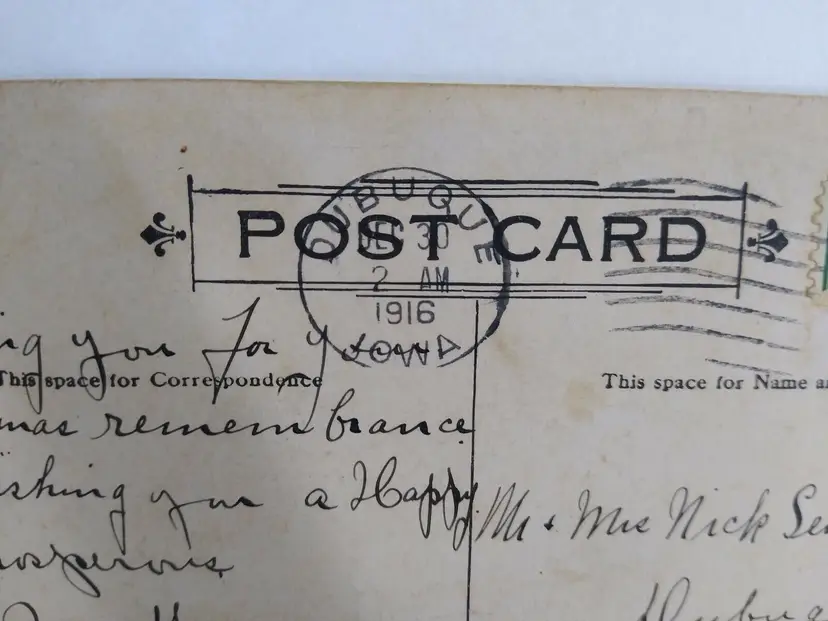 POST CARD
DUBUQUE
DEC 30
2 AM
1916
IOWA
ng you for y
This space for Correspondence
This space for Name a
mas remembrance
shing you a Happy
Mr + Mrs Nick
osperous
Dubuq